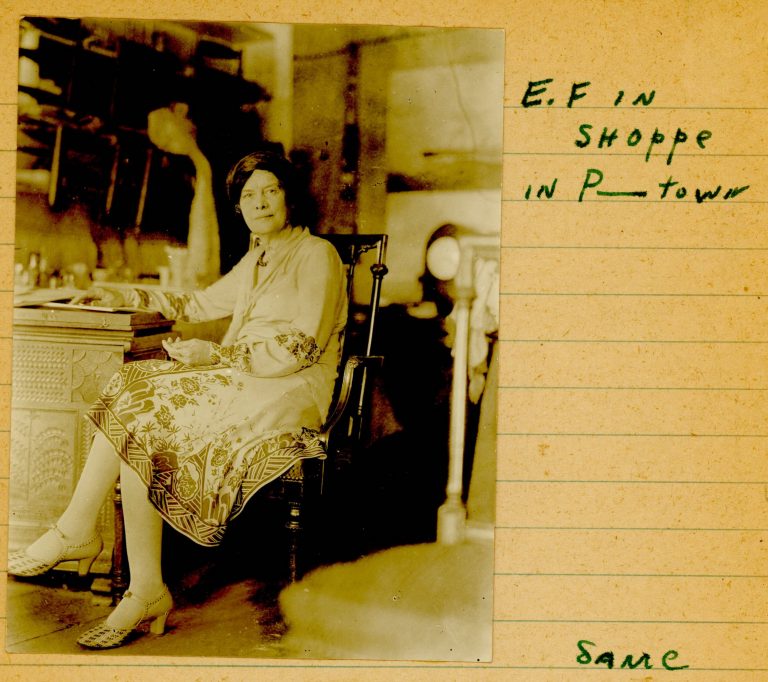 E.F IN
SHOPPE
IN P—TOWN
SAME